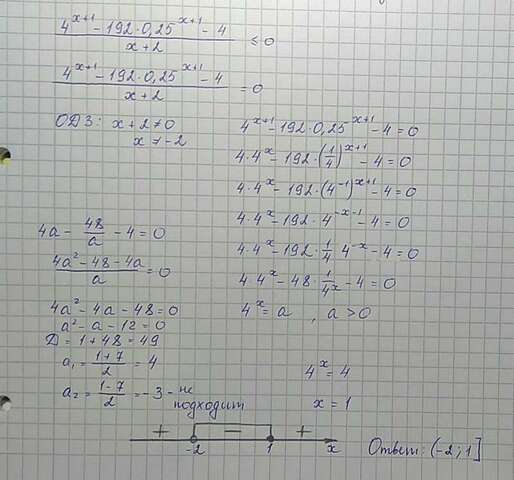 (4^(x+1) − 192·0,25^(x+1) − 4)/(x+2) ≤ 0
(4^(x+1) − 192·0,25^(x+1) − 4)/(x+2) = 0
ОДЗ: x+2≠0
x ≠ -2
4^(x+1) − 192·0,25^(x+1) − 4 = 0
4·4^x − 192·(1/4)^(x+1) − 4 = 0
4·4^x − 192·(4^(-1))^(x+1) − 4 = 0
4·4^x − 192·4^(-x-1) − 4 = 0
4·4^x − 192·1/4·4^(-x) − 4 = 0
4·4^x − 48·1/4^x − 4 = 0
4^x = a , a > 0
4a − 48/a − 4 = 0
(4a² − 48 − 4a)/a = 0
4a² − 4a − 48 = 0
a² − a − 12 = 0
Д = 1 + 48 = 49
a₁ = (1+7)/2 = 4
a₂ = (1-7)/2 = −3 − не подходит
4^x = 4
x = 1
+ − +
-2 1 x
Ответ: (-2; 1]